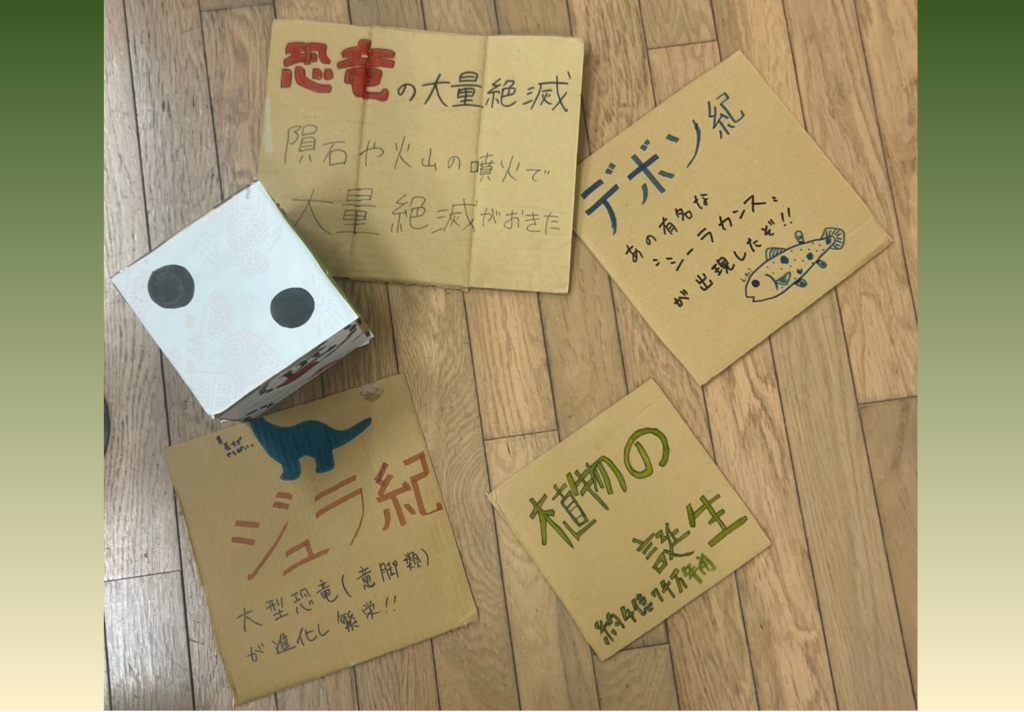 恐竜の大量絶滅
隕石や火山の噴火で
大量絶滅がおきた
デボン紀
あの有名な
シーラカンス
が出現したぞ!!
ジュラ紀
大型恐竜(竜脚類)
が進化し繁栄!!
植物の
誕生
約4億7千万年前